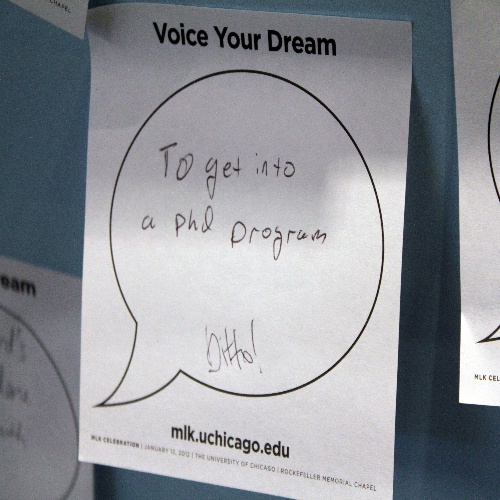 Voice Your Dream
To get into
a phd program
Ditto!
mlk.uchicago.edu
MLK CELEBRATION | JANUARY 12, 2012 | THE UNIVERSITY OF CHICAGO | ROCKEFELLER MEMORIAL CHAPEL
eam
MLK CEL
CHAPEL